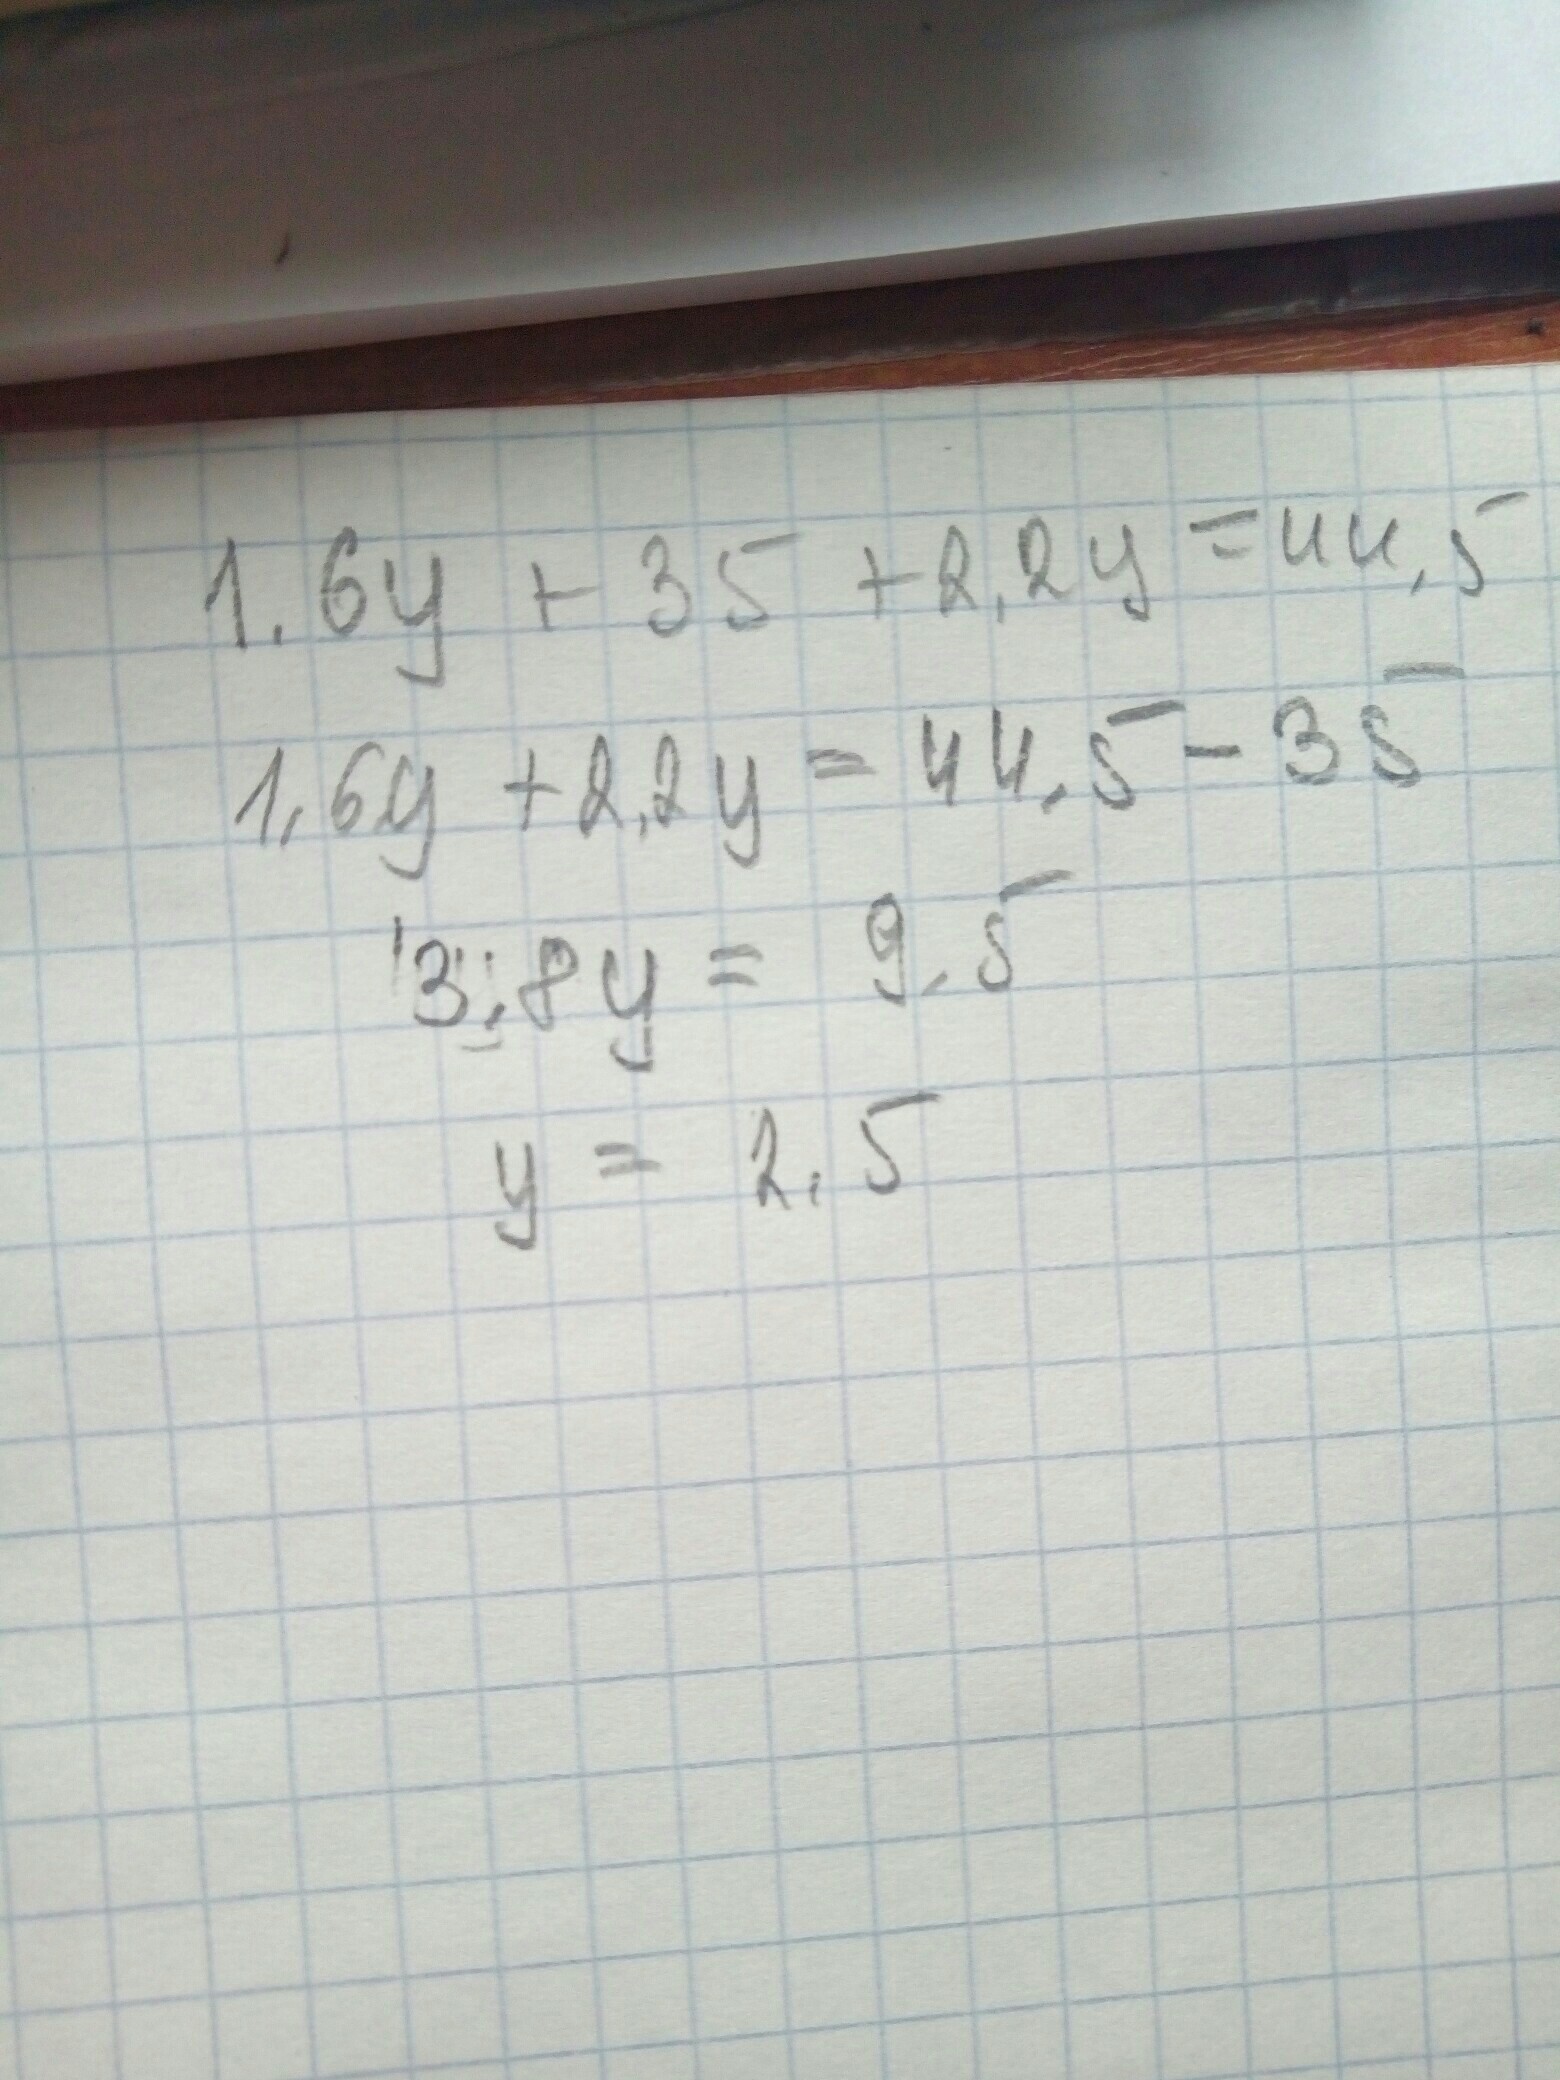 1.6y + 35 + 2.2y = 44.5
1.6y + 2.2y = 44.5 - 35
3.8y = 9.5
y = 2.5